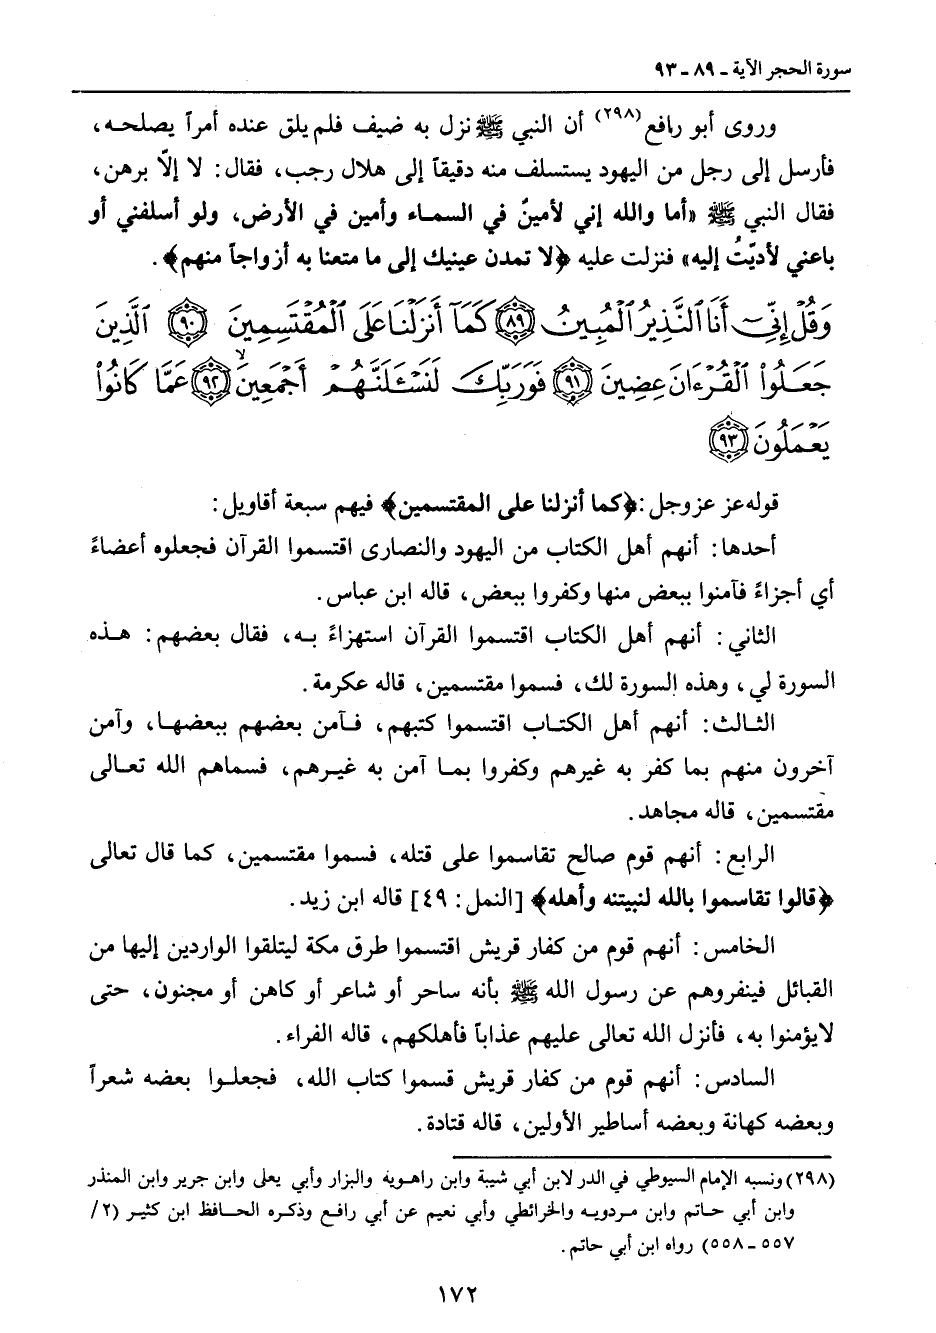 سورة الحجر الآية ـ ٨٩ ـ ٩٣
وروى أبو رافع(٢٩٨) أن النبي ﷺ نزل به ضيف فلم يلق عنده أمراً يصلحه،
فأرسل إلى رجل من اليهود يستسلف منه دقيقاً إلى هلال رجب، فقال: لا إلّا برهن،
فقال النبي ﷺ «أما والله إني لأمينٌ في السماء وأمين في الأرض، ولو أسلفني أو
باعني لأديّتُ إليه» فنزلت عليه ﴿لا تمدن عينيك إلى ما متعنا به أزواجاً منهم﴾.
وَقُلْ إِنِّي أَنَا النَّذِيرُ الْمُبِينُ ۝٨٩ كَمَا أَنزَلْنَا عَلَى الْمُقْتَسِمِينَ ۝٩٠ الَّذِينَ
جَعَلُوا الْقُرْءَانَ عِضِينَ ۝٩١ فَوَرَبِّكَ لَنَسْـَٔلَنَّهُمْ أَجْمَعِينَ ۝٩٢ عَمَّا كَانُوا
يَعْمَلُونَ ۝٩٣
قوله عز عزوجل: ﴿كما أنزلنا على المقتسمين﴾ فيهم سبعة أقاويل:
أحدها: أنهم أهل الكتاب من اليهود والنصارى اقتسموا القرآن فجعلوه أعضاءً
أي أجزاءً فآمنوا ببعض منها وكفروا ببعض، قاله ابن عباس.
الثاني: أنهم أهل الكتاب اقتسموا القرآن استهزاءً به، فقال بعضهم: هذه
السورة لي، وهذه السورة لك، فسموا مقتسمين، قاله عكرمة.
الثالث: أنهم أهل الكتاب اقتسموا كتبهم، فآمن بعضهم ببعضها، وآمن
آخرون منهم بما كفر به غيرهم وكفروا بما آمن به غيرهم، فسماهم الله تعالى
مقتسمين، قاله مجاهد.
الرابع: أنهم قوم صالح تقاسموا على قتله، فسموا مقتسمين، كما قال تعالى
﴿قالوا تقاسموا بالله لنبيتنه وأهله﴾ [النمل: ٤٩] قاله ابن زيد.
الخامس: أنهم قوم من كفار قريش اقتسموا طرق مكة ليتلقوا الواردين إليها من
القبائل فينفروهم عن رسول الله ﷺ بأنه ساحر أو شاعر أو كاهن أو مجنون، حتى
لايؤمنوا به، فأنزل الله تعالى عليهم عذاباً فأهلكهم، قاله الفراء.
السادس: أنهم قوم من كفار قريش قسموا كتاب الله، فجعلوا بعضه شعراً
وبعضه كهانة وبعضه أساطير الأولين، قاله قتادة.
(٢٩٨) ونسبه الإمام السيوطي في الدر لابن أبي شيبة وابن راهويه والبزار وأبي يعلى وابن جرير وابن المنذر
وابن أبي حاتم وابن مردويه والخرائطي وأبي نعيم عن أبي رافع وذكره الحافظ ابن كثير (٢/
٥٥٧ ـ ٥٥٨) رواه ابن أبي حاتم.
١٧٢